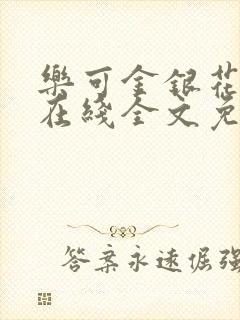 樂可金銀花
在綫全文免
答案永遠倔強